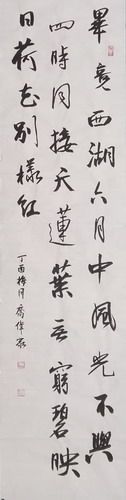 畢竟西湖六月中風光不與
四時同接天蓮葉无窮碧映
日荷花別樣紅
丁酉梅月